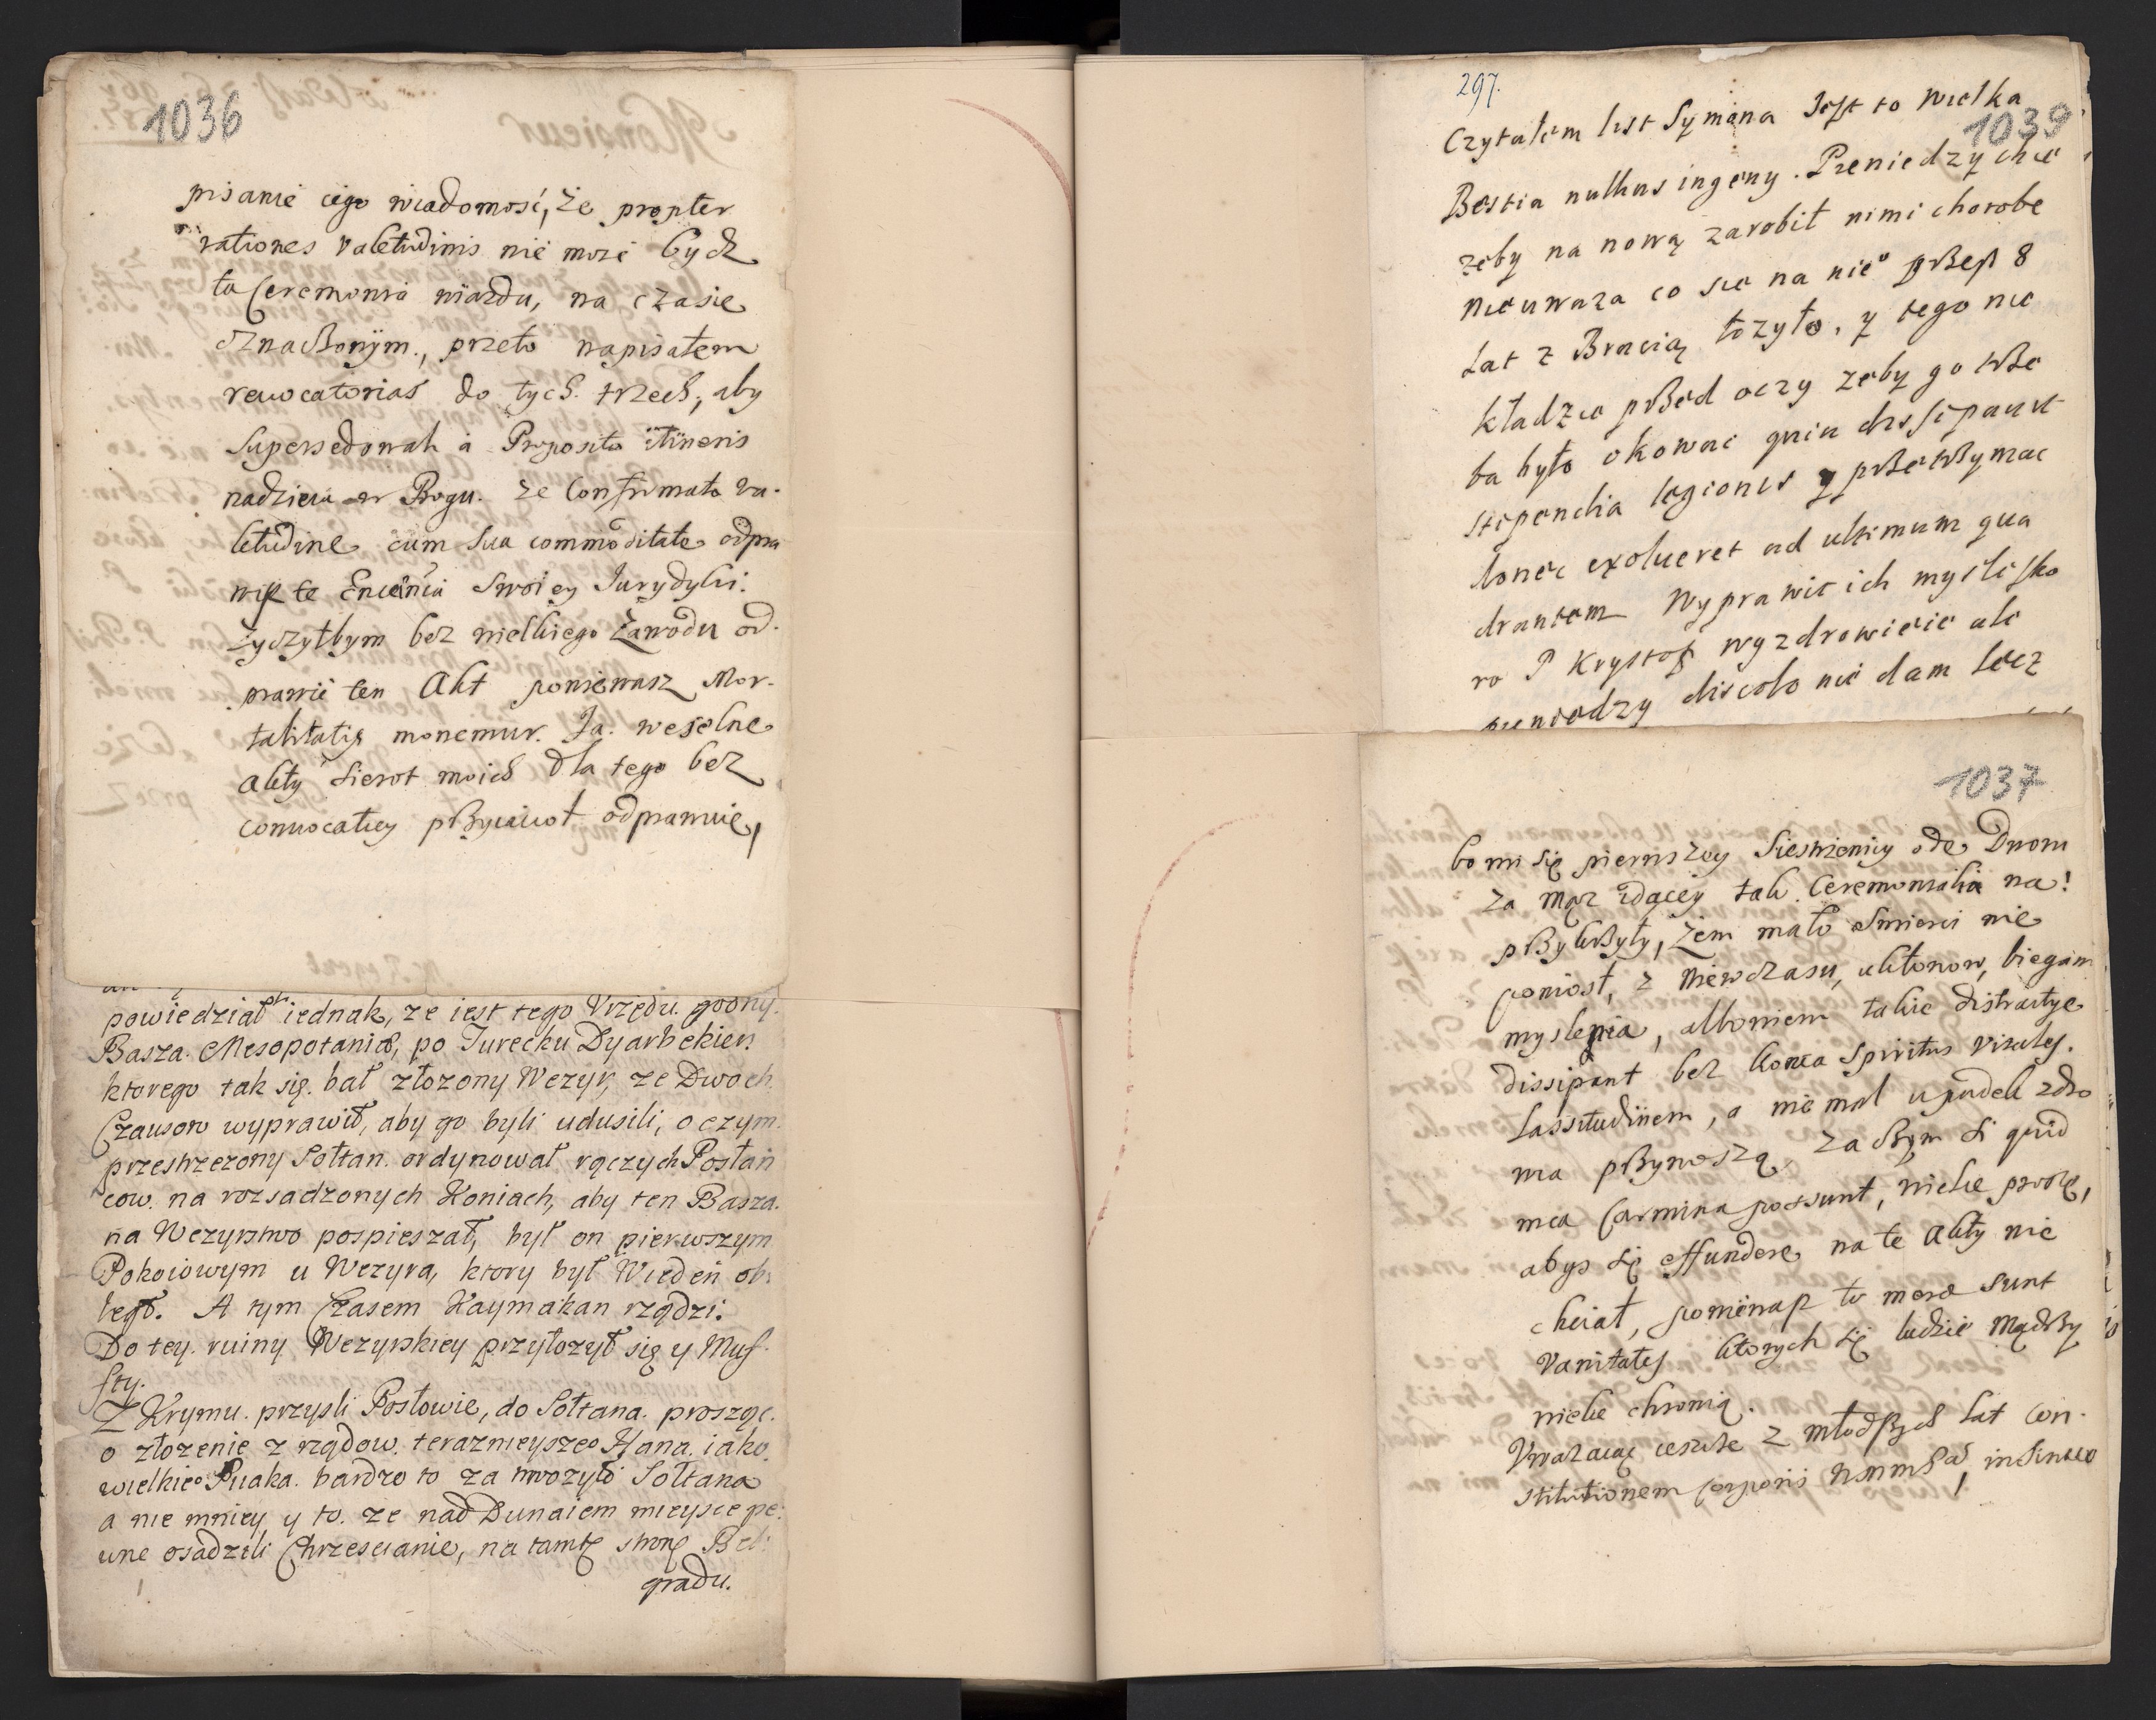 1036
pisanie iego wiadomość, że propter
rationes valetudinis nie może bydz
ta Ceremonia wiazdu, na czasie
oznaczonym, przeto napisałem
revocatorias do tych trzech, aby
supersedowali à Proposito itineris
nadzieia w Bogu. że confirmata va-
letudine cum sua commoditate odpra
wi te swoiey Iurydyki.
życzyłbym bez wielkiego zawodu od-
prawić ten Akt ponieważ Mor-
talitatis monemur. Ja. weselne
akty sierot moich dla tego bez
convocatiey odprawuię,
powiedział iednak, ze iest tego Vrzędu. godny.
Basza. Mesopotaniæ, po Turecku Dyarbekier.
ktorego tak się. bał złozony Wezyr, ze Dwoch.
Czausow wyprawił, aby go byli udusili, o czym.
przestrzezony Sołtan. ordynował rączych Posłań
cow. na rozsadzonych Koniach, aby ten Basza.
na Wezyrstwo pospieszał, był on pierwszym
Pokoiowym u Wezyra, ktory był Wiedeń ob:
legł. A tym Czasem Kaymakan rządzi.
Do tey. ruiny Wezyrskiey przyłozył się y Muf-
fty.
Z Krymu. przyśli Posłowie, do Sołtana. prosząc.
o złozenie z rządow. teraznieyszeo Hana. iako.
wielkieo Piiaka. bardzo to za trwozyło Sołtana
a nie mniey y to. ze nad Dunaiem mieysce pe:
wne osadzili Chrzescianie, na tamtę stronę Bel:
gradu.
297.
1039
Czytałem list Symana Jest to wielka
Bestia nullius ingeny. Pieniedzy chce
zeby na nową zarobił nimi chorobe
nie uwaza co sie na nieo przesz 8
Lat z Bracią łozyło, y tego nie
kładzie przed oczy zeby go trze
ba było okowac quia dissipavit
stipendia legionis y przetrzymac
donec exolueret ad ultimum qua
drantem Wyprawic ich mysle sko
ro P Krysztof wyzdrowieie ale
pieniedzy discolo nie dam lecz
1037
bo mi się pierwszey Siestrzenicy ode Dworu
za mąz idącey tak Ceremonialia na!
przykrzyły, żem mało smierci nie
poniosł, z niewczasu, ukłonow, biegan
myslenia, albowiem takie distractye
dissipant bez konca Spiritus vitales.
Lassitudinem, a nie mal upadek zdro
wia przynoszą, zaczym si quid
mea Carmina possunt, wielce proszę,
abys się effundere na te Akty nie
chciał, ponieważ to meræ sunt
Vanitates ktorych się ludzie Mądrzy
wielce chronią.
Vważaiąc ieszcze z młodszych lat con-
stitutionem Corporis,